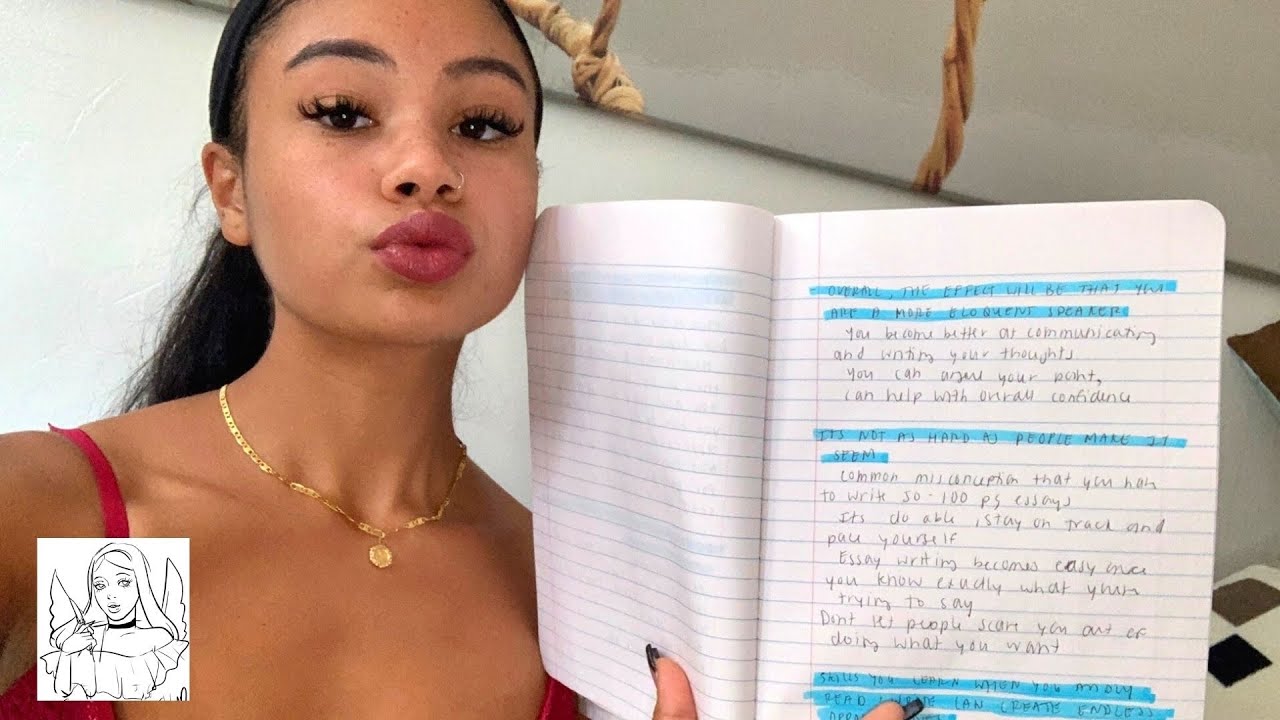 - OVERALL, THE EFFECT WILL BE THAT YOU
ARE A MORE ELOQUENT SPEAKER
You become better at communicating
and writing your thoughts
You can argue your point,
can help with overall confidence
ITS NOT AS HARD AS PEOPLE MAKE IT
SEEM
Common misconception that you have
to write 50-100 pg essays
Its do able, stay on track and
pace yourself
Essay writing becomes easy once
you know exactly what your
trying to say
Dont let people scare you out of
doing what you want
SKILLS YOU LEARN WHEN YOU
READ CAN CREATE ENDLESS